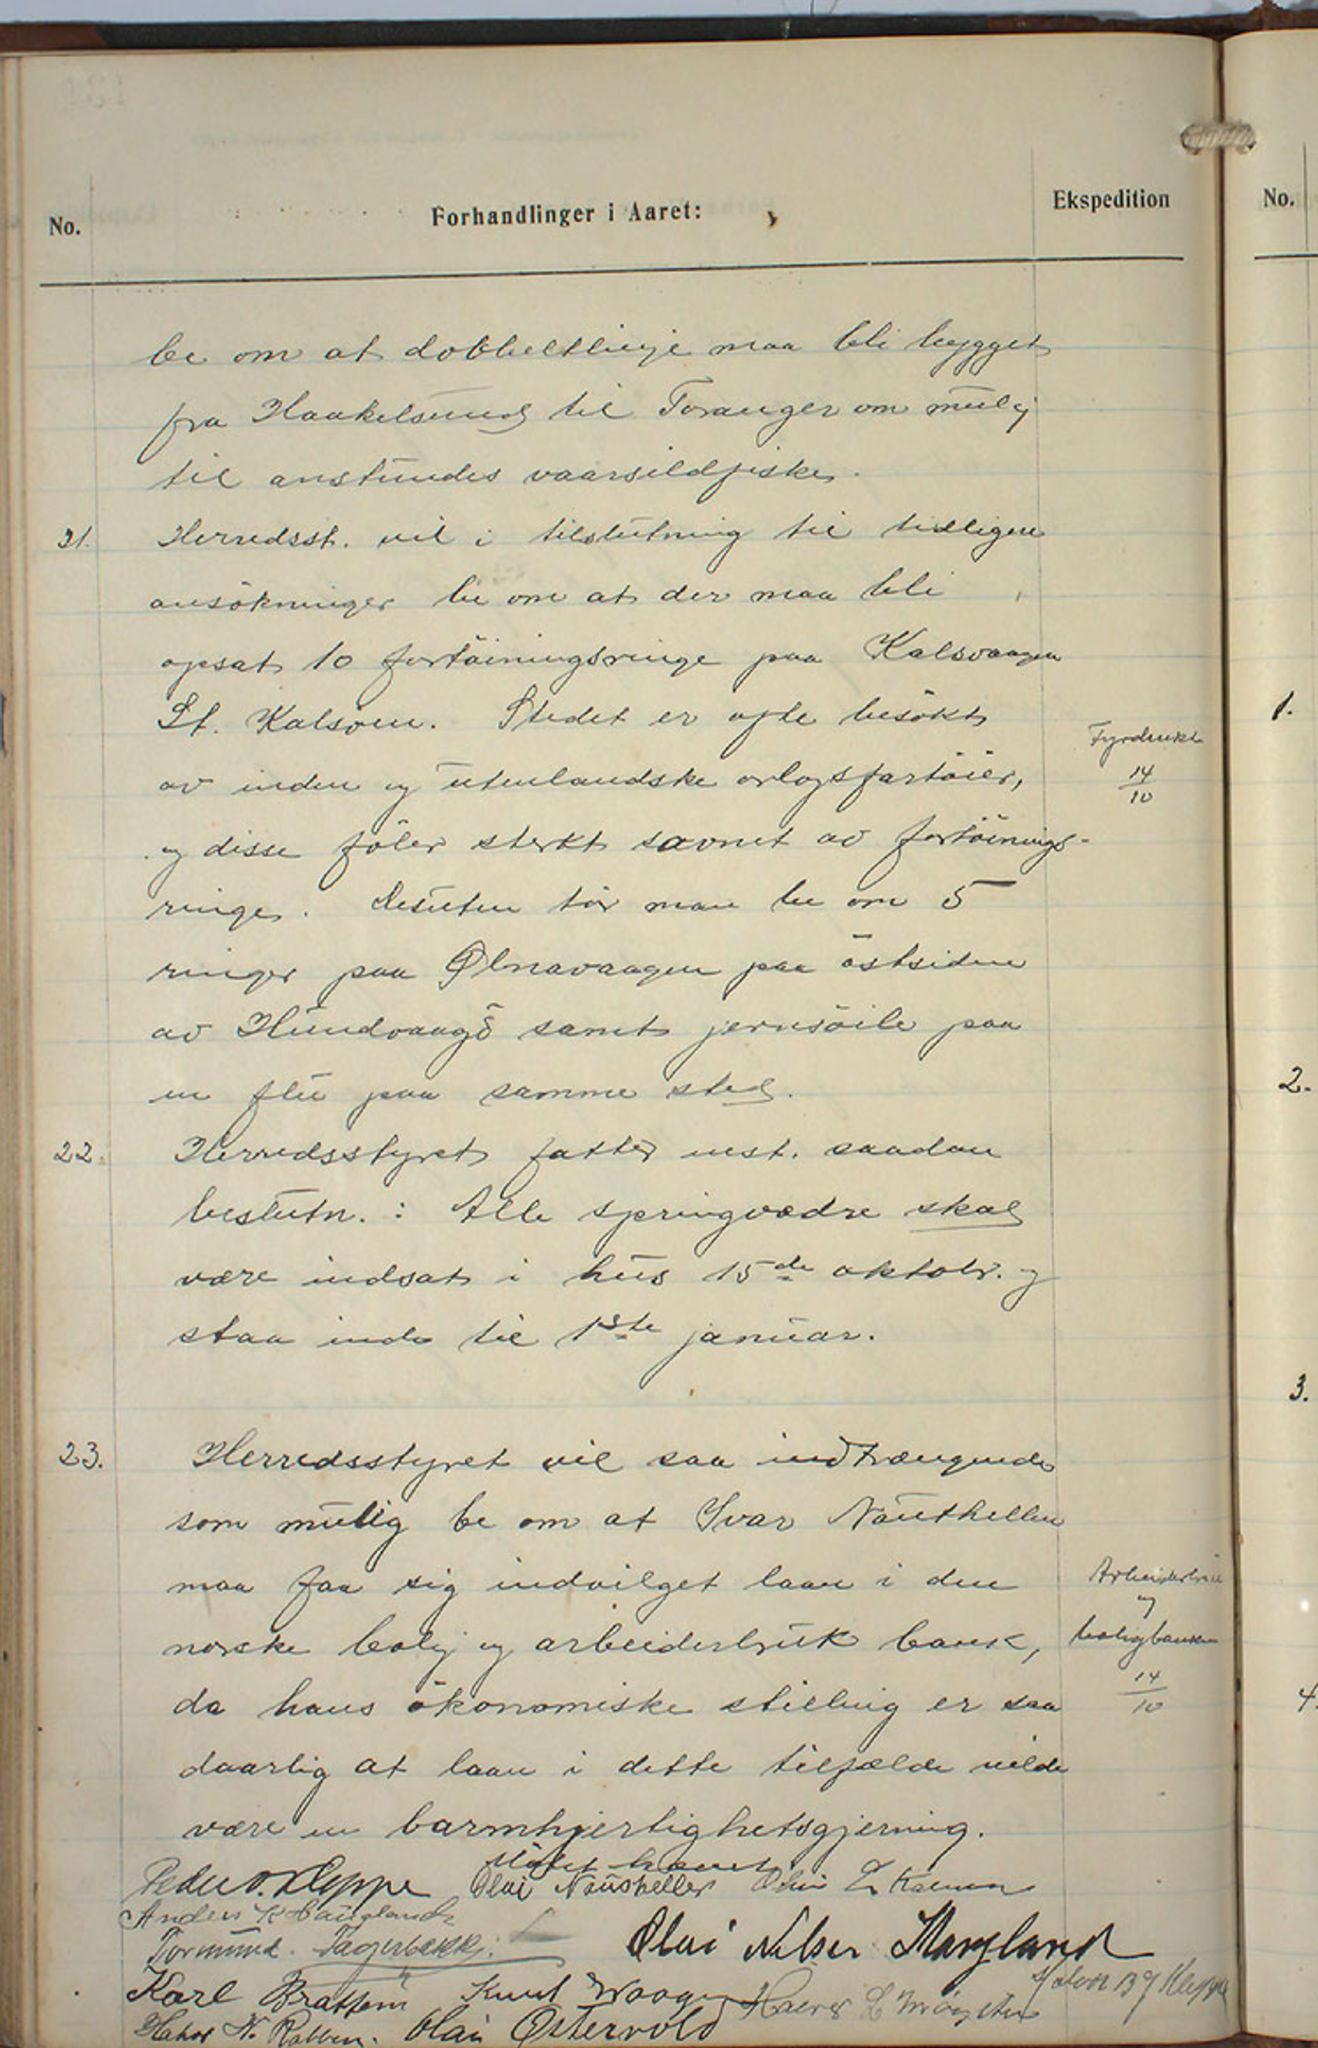 No.
Forhandlinger i Aaret:
Ekspedition
No.
be om at dobbeltlinje maa bli bygget
fra Haakelsund til Toranger om mulig
til anstundes vaarsildfiske.
21. Herredsst. vil i tilslutning til tidligere
ansökninger be om at der maa bli
opsat 10 fortöiningsringe paa Kalsvaagen
St. Kalsöen. Stedet er ofte besökt
av inden og utenlandske orlogsfartöier,
og disse föler sterkt savnet av fortöinings-
ringe. Desuten tör man be om 5
ringer paa Ølnavaagen paa östsiden
av Hundvaagö samt jernsöile paa
en flu paa samme sted.
Fyrdirekt.
14/10
22. Herredsstyret fatter enst. saadan
beslutn.: Alle springvædre skal
være indsat i hus 15de oktobr. og
staa inde til 1ste januar.
23. Herredsstyret vil saa indtrængende
som mulig be om at Ivar Nauthellen
maa faa sig indvilget laan i den
norske bolig og arbeiderbruk bank,
da hans ökonomiske stilling er saa
daarlig at laan i dette tilfælde vilde
være en barmhjertighetsgjerning.
Arbeiderbruk
og
boligbanken
14/10
Mötet hævet
Peder O. Kleppe Olai Naushellen
Anders K Haugland
Tormund Fagerbakke Olai Nilsen Møgland
Karl Brattem Knut Waagen Halvor L Møgster Halvor B Kleppe
Olai Østervold
1.
2.
3.
4.